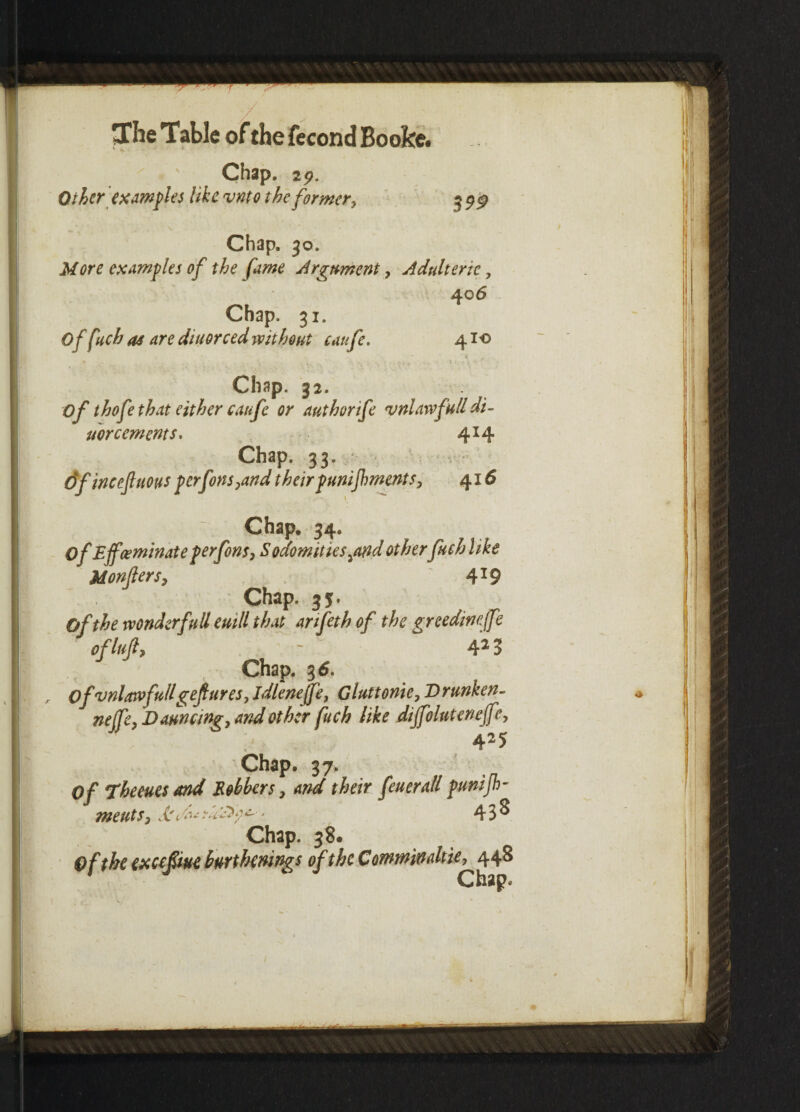 The Table of the ſecond Booke.
Chap. 29.
Other examples like vnto the former, 399
Chap. 30.
More examples of the ſame Argument, Adulterie,
406
Chap. 31.
Of ſuch as are diuorced without cauſe. 410
Chap. 32.
Of thoſe that either cauſe or authoriſe vnlawfull di-
uorcements. 414
Chap. 33.
Of inceſtuous perſons, and their puniſhments, 416
Chap. 34.
Of Effœminate perſons, Sodomities, and other ſuch like
Monſters, 419
Chap. 35.
Of the wonderfull euill that ariſeth of the greedineſſe
of luſt, 423
Chap. 36.
Of vnlawfull geſtures, Idleneſſe, Gluttonie, Drunken-
neſſe, Dauncing, and other ſuch like diſſoluteneſſe,
425
Chap. 37.
Of Theeues and Robbers, and their ſeuerall puniſh-
ments, 438
Chap. 38.
Of the exceſſiue burthenings of the Comminaltie, 448
Chap.